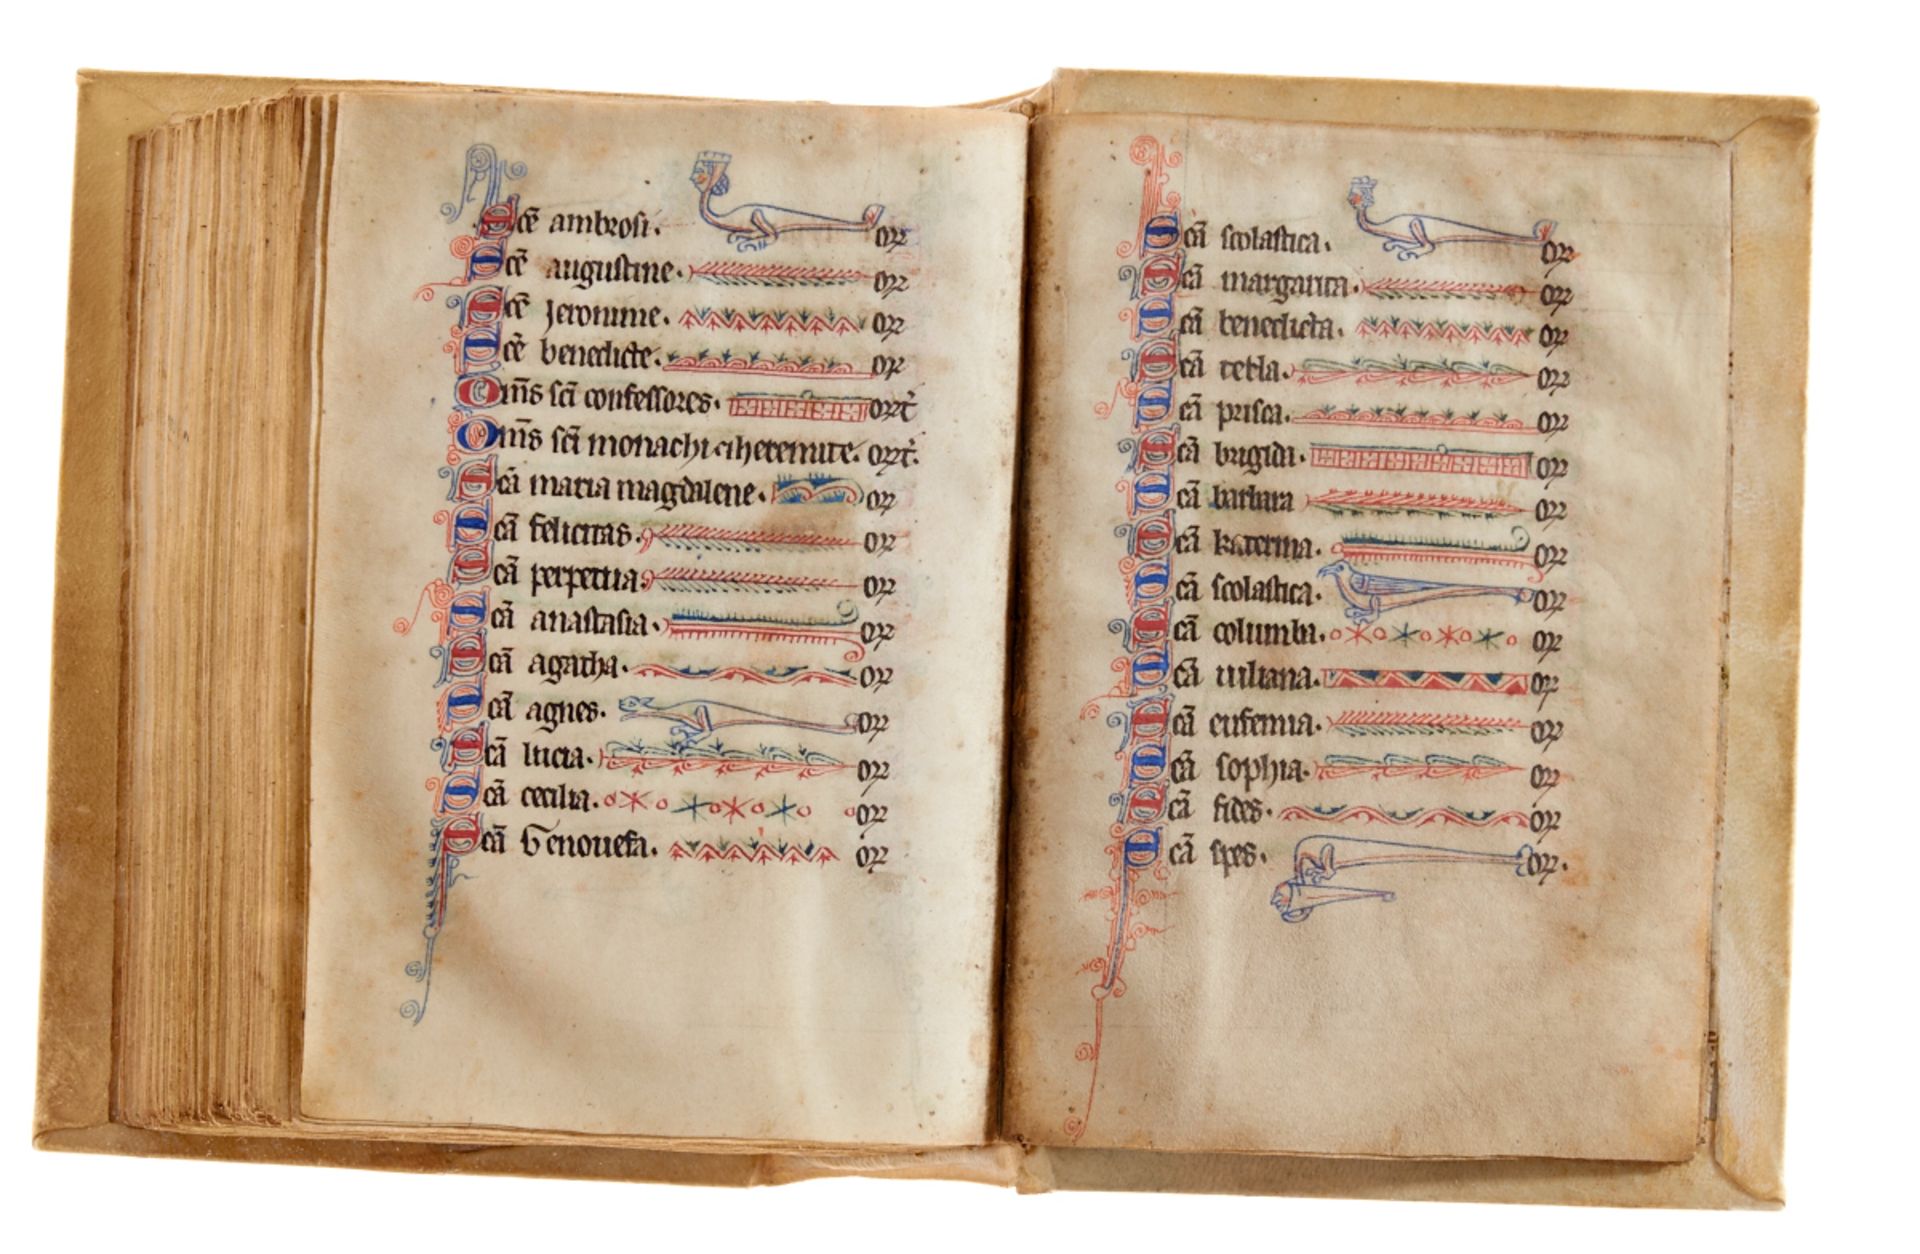 Scē ambrosi. oꝛꝛ
Scē augustine. oꝛꝛ
Scē Jeronime. oꝛꝛ
Scē benedicte. oꝛ
Om̄s sc̄i confessores. oꝛꝛt̄
Om̄s sc̄i monachi ⁊ heremite. oꝛꝛt̄.
Scā maria magdalene. oꝛ
Scā felicitas. oꝛ
Scā perpetua oꝛꝛ
Scā anastasia. oꝛꝛ
Scā agatha. oꝛꝛ
Scā agnes. oꝛꝛ
Scā lucia. oꝛꝛ
Scā cecilia. oꝛꝛ
Scā Genouefa. oꝛꝛ
Scā scolastica. oꝛꝛ
Scā margarita. oꝛꝛ
Scā benedicta. oꝛꝛ
Scā tecla. oꝛꝛ
Scā prisca. oꝛꝛ
Scā brigida. oꝛꝛ
Scā barbara oꝛꝛ
Scā katerina. oꝛꝛ
Scā scolastica. oꝛꝛ
Scā columba. oꝛ
Scā iuliana. oꝛ
Scā eufemia. oꝛꝛ
Scā sophia. oꝛꝛ
Scā fides. oꝛꝛ
Scā spes. oꝛꝛ.